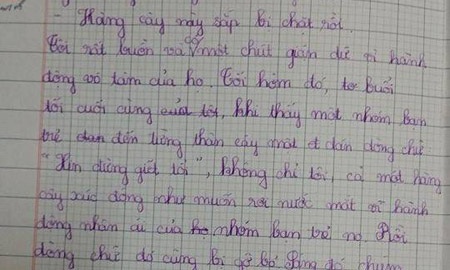 - Hàng cây này sắp bị chặt rồi.
Tôi rất buồn và có một chút giận dữ vì hành
động vô tâm của họ. Tối hôm đó, buổi
tối cuối cùng của tôi, khi thấy một nhóm bạn
trẻ dán đến từng thân cây một dán dòng chữ
"Xin đừng giết tôi", không chỉ tôi, cả một hàng
cây xúc động như muốn rơi nước mắt vì hành
động nhân ái của nhóm bạn trẻ nọ. Rồi
dòng chữ đó cũng bị gỡ bỏ. đó nhưng